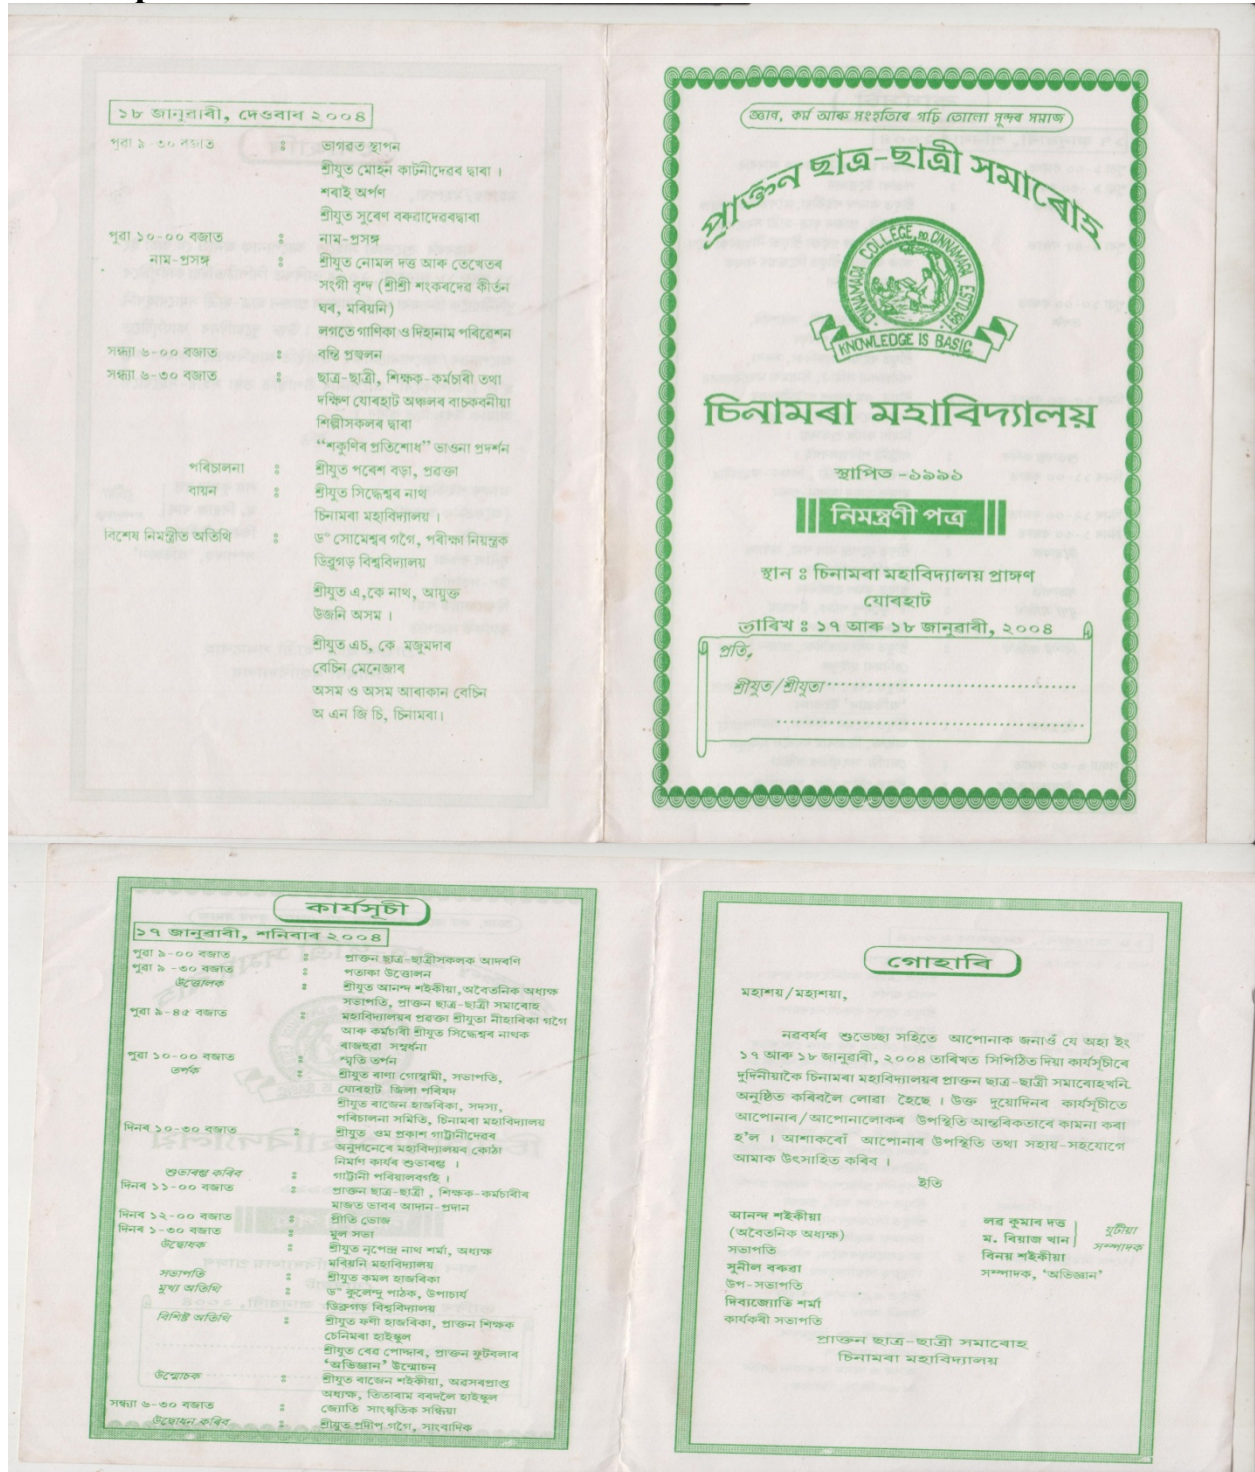 ১৮ জানুৱাৰী, দেওবাৰ ২০০৪
পুৱা ৯-৩০ বজাত : ভাগৱত স্থাপন
শ্ৰীযুত মোহন কাটনীদেৱৰ দ্বাৰা ।
শৰাই অৰ্পণ
শ্ৰীযুত সুৰেণ বৰুৱাদেৱৰদ্বাৰা
পুৱা ১০-০০ বজাত : নাম-প্ৰসঙ্গ
নাম-প্ৰসঙ্গ : শ্ৰীযুত নোমল দত্ত আৰু তেখেতৰ
সংগী বৃন্দ (শ্ৰীশ্ৰী শংকৰদেৱ কীৰ্তন
ঘৰ, মৰিয়নি)
লগতে গাণিকা ও দিহানাম পৰিৱেশন
সন্ধ্যা ৬-০০ বজাত : বন্তি প্ৰজ্বলন
সন্ধ্যা ৬-৩০ বজাত : ছাত্ৰ-ছাত্ৰী, শিক্ষক-কৰ্মচাৰী তথা
দক্ষিণ যোৰহাট অঞ্চলৰ বাচকবনীয়া
শিল্পীসকলৰ দ্বাৰা
“শকুণিৰ প্ৰতিশোধ” ভাওনা প্ৰদৰ্শন
পৰিচালনা : শ্ৰীযুত পৰেশ বড়া, প্ৰৱক্তা
বায়ন : শ্ৰীযুত সিদ্ধেশ্বৰ নাথ
চিনামৰা মহাবিদ্যালয় ।
বিশেষ নিমন্ত্ৰীত অতিথি : ড° সোমেশ্বৰ গগৈ, পৰীক্ষা নিয়ন্ত্ৰক
ডিব্ৰুগড় বিশ্ববিদ্যালয়
শ্ৰীযুত এ,কে নাথ, আয়ুক্ত
উজনি অসম ।
শ্ৰীযুত এচ, কে মজুমদাৰ
বেচিন মেনেজাৰ
অসম ও অসম আৰাকান বেচিন
অ এন জি চি, চিনামৰা।
জ্ঞান, কৰ্ম আৰু সংহতিৰে গঢ়ি তোলো সুন্দৰ সমাজ
প্ৰাক্তন ছাত্ৰ-ছাত্ৰী সমাৰোহ
CINNAMARA COLLEGE, PO. CINNAMARA ESTD. 1991
KNOWLEDGE IS BASIC
চিনামৰা মহাবিদ্যালয়
স্থাপিত -১৯৯১
নিমন্ত্ৰণী পত্ৰ
স্থান : চিনামৰা মহাবিদ্যালয় প্ৰাঙ্গণ
যোৰহাট
তাৰিখ : ১৭ আৰু ১৮ জানুৱাৰী, ২০০৪
প্ৰতি,
শ্ৰীযুত/শ্ৰীযুতা
কাৰ্যসূচী
১৭ জানুৱাৰী, শনিবাৰ ২০০৪
পুৱা ৯-০০ বজাত : প্ৰাক্তন ছাত্ৰ-ছাত্ৰীসকলক আদৰণি
পুৱা ৯ -৩০ বজাত : পতাকা উত্তোলন
উত্তোলক : শ্ৰীযুত আনন্দ শইকীয়া,অবৈতনিক অধ্যক্ষ
সভাপতি, প্ৰাক্তন ছাত্ৰ-ছাত্ৰী সমাৰোহ
পুৱা ৯-৪৫ বজাত : মহাবিদ্যালয়ৰ প্ৰৱক্তা শ্ৰীযুতা নীহাৰিকা গগৈ
আৰু কৰ্মচাৰী শ্ৰীযুত সিদ্ধেশ্বৰ নাথক
ৰাজহুৱা সম্বৰ্ধনা
পুৱা ১০-০০ বজাত : স্মৃতি তৰ্পন
তৰ্পক : শ্ৰীযুত ৰাণা গোস্বামী, সভাপতি,
যোৰহাট জিলা পৰিষদ
শ্ৰীযুত ৰাজেন হাজৰিকা, সদস্য,
পৰিচালনা সমিতি, চিনামৰা মহাবিদ্যালয়
দিনৰ ১০-৩০ বজাত : শ্ৰীযুত ওম প্ৰকাশ গাট্টানীদেৱৰ
অনুদানেৰে মহাবিদ্যালয়ৰ কোঠা
নিৰ্মাণ কাৰ্যৰ শুভাৰম্ভ ।
শুভাৰম্ভ কৰিব : গাট্টানী পৰিয়ালবৰ্গই ।
দিনৰ ১১-০০ বজাত : প্ৰাক্তন ছাত্ৰ-ছাত্ৰী , শিক্ষক-কৰ্মচাৰীৰ
মাজত ভাবৰ আদান-প্ৰদান
দিনৰ ১২-০০ বজাত : প্ৰীতি ভোজ
দিনৰ ১-৩০ বজাত : মূল সভা
উদ্বোধক : শ্ৰীযুত নৃপেন্দ্ৰ নাথ শৰ্মা, অধ্যক্ষ
মৰিয়নি মহাবিদ্যালয়
সভাপতি : শ্ৰীযুত কমল হাজৰিকা
মুখ্য অতিথি : ড° কুলেন্দু পাঠক, উপাচাৰ্য
ডিব্ৰুগড় বিশ্ববিদ্যালয়
বিশিষ্ট অতিথি : শ্ৰীযুত ফণী হাজৰিকা, প্ৰাক্তন শিক্ষক
চেনিমৰা হাইস্কুল
শ্ৰীযুত ৰেৱ পোদ্দাৰ, প্ৰাক্তন ফুটবলাৰ
‘অভিজ্ঞান’ উন্মোচন
উন্মোচক : শ্ৰীযুত ৰাজেন শইকীয়া, অৱসৰপ্ৰাপ্ত
অধ্যক্ষ, তিতাৰাম বৰদলৈ হাইস্কুল
সন্ধ্যা ৬-৩০ বজাত : জ্যোতি সাংস্কৃতিক সন্ধিয়া
উদ্বোধন কৰিব : শ্ৰীযুত প্ৰদীপ গগৈ, সাংবাদিক
গোহাৰি
মহাশয়/মহাশয়া,
নৱবৰ্ষৰ শুভেচ্ছা সহিতে আপোনাক জনাওঁ যে অহা ইং
১৭ আৰু ১৮ জানুৱাৰী, ২০০৪ তাৰিখত সিপিঠিত দিয়া কাৰ্যসূচীৰে
দুদিনীয়াকৈ চিনামৰা মহাবিদ্যালয়ৰ প্ৰাক্তন ছাত্ৰ-ছাত্ৰী সমাৰোহখনি
অনুষ্ঠিত কৰিবলৈ লোৱা হৈছে । উক্ত দুয়োদিনৰ কাৰ্যসূচীতে
আপোনাৰ/আপোনালোকৰ উপস্থিতি আন্তৰিকতাৰে কামনা কৰা
হ’ল । আশাকৰোঁ আপোনাৰ উপস্থিতি তথা সহায়-সহযোগে
আমাক উৎসাহিত কৰিব ।
ইতি
আনন্দ শইকীয়া
(অবৈতনিক অধ্যক্ষ)
সভাপতি
সুনীল বৰুৱা
উপ-সভাপতি
দিব্যজ্যোতি শৰ্মা
কাৰ্যকৰী সভাপতি
লৱ কুমাৰ দত্ত
ম. ৰিয়াজ খান
যুটীয়া সম্পাদক
বিনয় শইকীয়া
সম্পাদক, ‘অভিজ্ঞান’
প্ৰাক্তন ছাত্ৰ-ছাত্ৰী সমাৰোহ
চিনামৰা মহাবিদ্যালয়